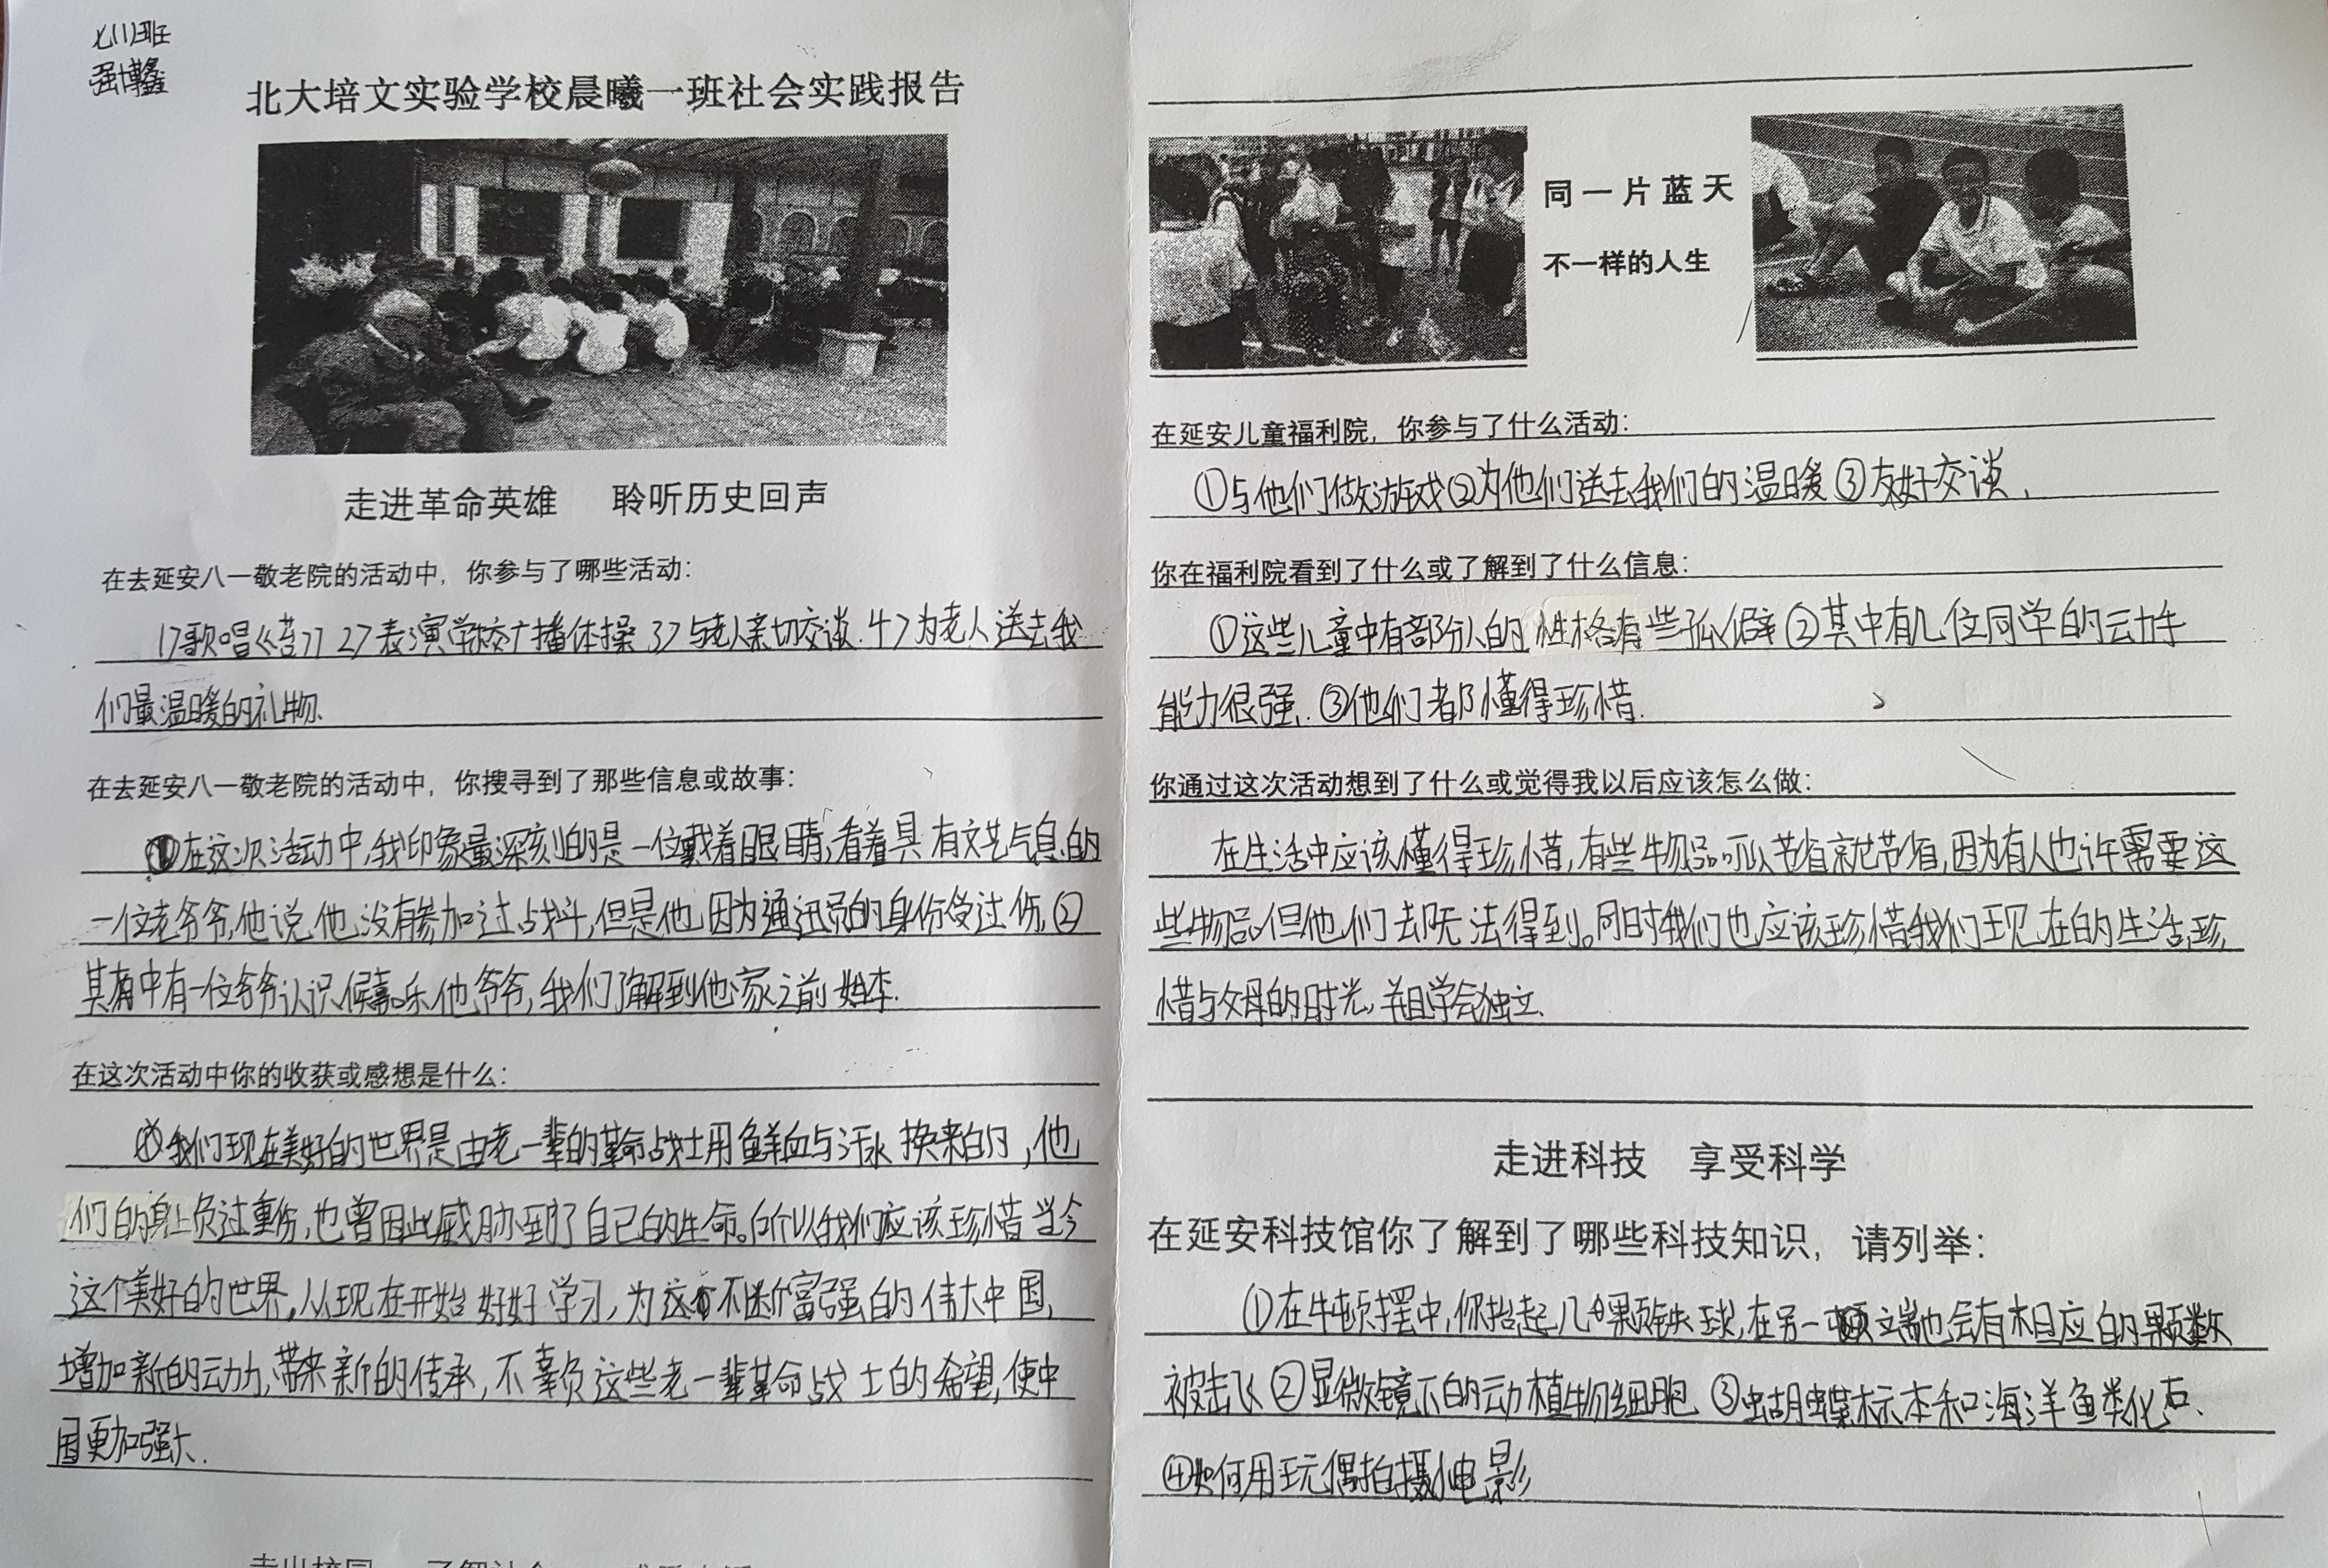 七(1)班
强博鑫
北大培文实验学校晨曦一班社会实践报告
走进革命英雄 聆听历史回声
在去延安八一敬老院的活动中，你参与了哪些活动：
1>歌唱《苔》 2>表演学校广播体操 3>与老人亲切交谈. 4>为老人送去我
们最温暖的礼物.
在去延安八一敬老院的活动中，你搜寻到了那些信息或故事：
①在这次活动中,我印象最深刻的是一位戴着眼睛,看着具有文艺气息的
一位老爷爷,他说他没有参加过战斗,但是他因为通讯员的身份受过伤.②
其中有一位爷爷认识候嘉乐他爷爷,我们了解到他家之前姓李.
在这次活动中你的收获或感想是什么：
我们现在美好的世界是由老一辈的革命战士用鲜血与汗水换来的,他
们的身上负过重伤,也曾因此威胁到了自己的生命。所以我们应该珍惜当今
这个美好的世界,从现在开始好好学习,为这个不断富强的伟大中国,
增加新的动力,带来新的传承,不辜负这些老一辈革命战士的希望,使中
国更加强大.
同一片蓝天
不一样的人生
在延安儿童福利院，你参与了什么活动：
①与他们做游戏②为他们送去我们的温暖③友好交谈.
你在福利院看到了什么或了解到了什么信息：
①这些儿童中有部分人的性格有些孤僻②其中有几位同学的动手
能力很强.③他们都懂得珍惜.
你通过这次活动想到了什么或觉得我以后应该怎么做：
在生活中应该懂得珍惜,有些物品可以节省就节省,因为有人也许需要这
些物品但他们却无法得到。同时我们也应该珍惜我们现在的生活,珍
惜与父母的时光,并且学会独立.
走进科技 享受科学
在延安科技馆你了解到了哪些科技知识，请列举：
①在牛顿摆中,你抬起几颗铁球,在另一端也会有相应的颗数
被击飞②显微镜下的动植物细胞 ③蝴蝶标本和海洋鱼类化石.
④如何用玩偶拍摄电影